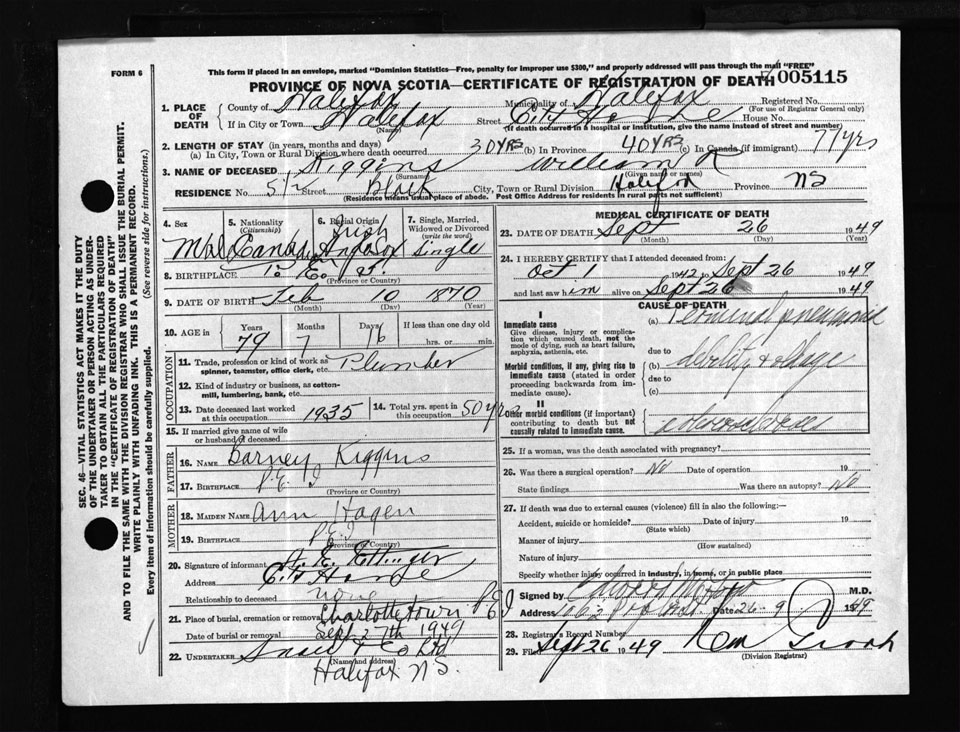 FORM 6
This form if placed in an envelope, marked "Dominion Statistics—Free, penalty for improper use $300," and properly addressed will pass through the mail "FREE"
PROVINCE OF NOVA SCOTIA—CERTIFICATE OF REGISTRATION OF DEATH 005115
1. PLACE OF DEATH County of Halifax Municipality of Halifax Registered No.
(For use of Registrar General only)
If in City or Town Halifax Street City Home House No.
(Name) (If death occurred in a hospital or institution, give the name instead of street and number)
2. LENGTH OF STAY (in years, months and days)
(a) In City, Town or Rural Division where death occurred 30 YRS (b) In Province 40 YRS (c) In Canada (if immigrant) 77 yrs
3. NAME OF DECEASED Higgins William
(Surname) (Given name or names)
RESIDENCE No. 51/2 Street Black City, Town or Rural Division Halifax Province NS
(Residence means usual place of abode. Post Office Address for residents in rural parts not sufficient)
4. Sex
5. Nationality (Citizenship)
6. Racial Origin Irish
7. Single, Married, Widowed or Divorced (write the word)
Single
8. BIRTHPLACE P. E. I.
(Province or Country)
9. DATE OF BIRTH Feb 10 1870
(Month) (Day) (Year)
10. AGE in Years Months Days If less than one day old
79 7 16 hrs. or min.
OCCUPATION
11. Trade, profession or kind of work as spinner, teamster, office clerk, etc. Plumber
12. Kind of industry or business, as cotton-mill, lumbering, bank, etc.
13. Date deceased last worked at this occupation 1935
14. Total yrs. spent in this occupation 50 yrs
15. If married give name of wife or husband of deceased
FATHER
16. NAME Barney Higgins
17. BIRTHPLACE P.E.I
(Province or Country)
MOTHER
18. MAIDEN NAME Ann Hagen
19. BIRTHPLACE P.E.I
(Province or Country)
20. Signature of informant A. E. Ettinger
Address City Home
Relationship to deceased none
21. Place of burial, cremation or removal Charlottetown P E I
Date of burial or removal Sept 27th 1949
22. UNDERTAKER Snow & Co Ltd
(Name and address)
Halifax N.S.
MEDICAL CERTIFICATE OF DEATH
23. DATE OF DEATH Sept 26 1949
(Month) (Day) (Year)
24. I HEREBY CERTIFY that I attended deceased from:
Oct 1 1942 to Sept 26 1949
and last saw him alive on Sept 26 1949
CAUSE OF DEATH
I
Immediate cause
Give disease, injury or complication which caused death, not the mode of dying, such as heart failure, asphyxia, asthenia, etc.
(a) Terminal pneumonia
due to
Morbid conditions, if any, giving rise to immediate cause (stated in order proceeding backwards from immediate cause).
(b) debility & old age
due to
(c)
II
Other morbid conditions (if important) contributing to death but not causally related to immediate cause.
25. If a woman, was the death associated with pregnancy?
26. Was there a surgical operation? No Date of operation 19
State findings Was there an autopsy? No
27. If death was due to external causes (violence) fill in also the following:—
Accident, suicide or homicide? Date of injury 19
(State which)
Manner of injury
(How sustained)
Nature of injury
Specify whether injury occurred in industry, in home, or in public place
Signed by M.D.
Address Date 26-9 1949
28. Registrar's Record Number
29. Filed Sept 26 1949
(Division Registrar)
SEC. 46—VITAL STATISTICS ACT MAKES IT THE DUTY
OF THE UNDERTAKER OR PERSON ACTING AS UNDER-
TAKER TO OBTAIN ALL THE PARTICULARS REQUIRED
IN THE "CERTIFICATE OF REGISTRATION OF DEATH"
AND TO FILE THE SAME WITH THE DIVISION REGISTRAR WHO SHALL ISSUE THE BURIAL PERMIT.
WRITE PLAINLY WITH UNFADING INK. THIS IS A PERMANENT RECORD.
Every item of information should be carefully supplied. (See reverse side for instructions.)